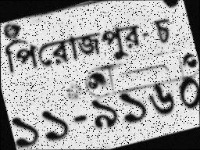 পিরোজপুর-চ
১১-৯১৬০